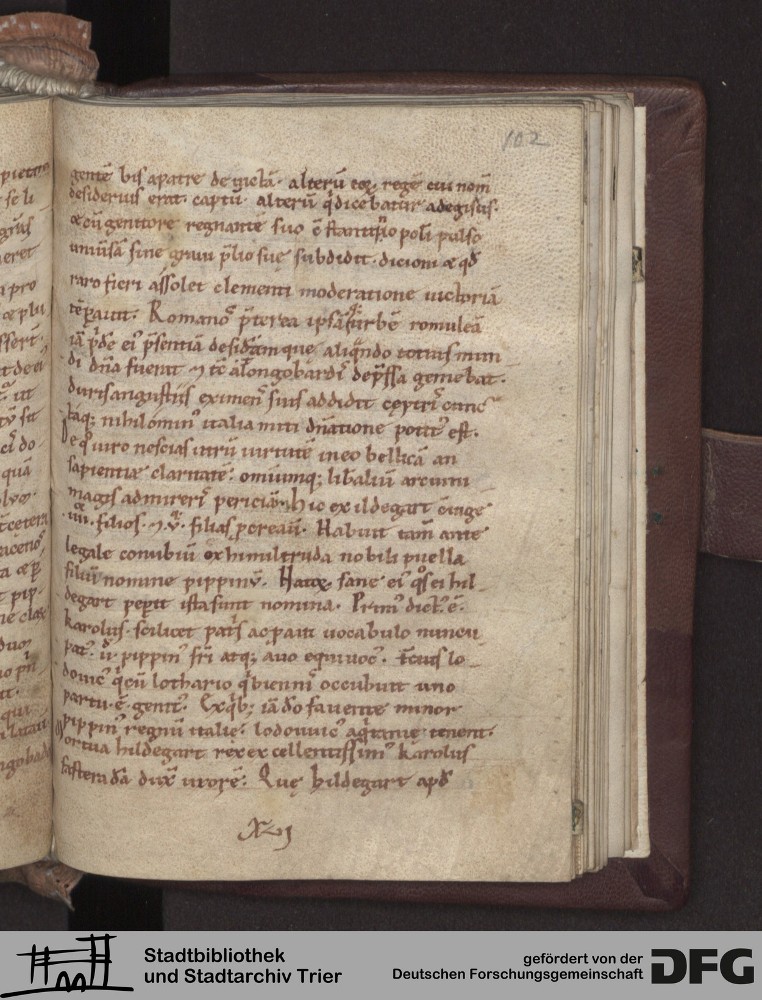 102
gentē bis apatre deuictā. alterū eoꝝ regē cui nom̄
desiderius erat captū. alterū q̇dicebatur adegisus.
⁊cū genitore regnante suo ē stantinopoli pulso
uniūsā sine graui p̄lio suę subdidit. dicioni ⁊ qđ
raro fieri assolet clementi moderatione uictoriā
tēꝑauit. Romanoꝰ p̄terea ipsāq; urbē romuleā
iā p̄dē eiꝰ p̄sentiā desidātam que aliq̇ndo totius mun
di dn̄a fuerit ⁊ tc̄ alongobardiꝰ dep̄ssa gemebat.
durisangustiis eximenꝰ suis addidit ceptriꝰ cunc
taq; nihilominꝰ italia miti dn̄atione potitꝰ est.
De qͦ uiro nescias utrū uirtutē ineo bellicā an
sapientiæ claritatē. omiumq; lib̄aliū arcium
magis admireriꝰ periciā. hic ex ildegart ɔiuge
.iiii. filios. ⁊ .v. filias ꝓcreaū. Habuit tam̄ ante
legale conubiū ex himiltruda nobili puella
filiū nomine pippinū. Haꝝ sane ei qͦsei hil
degart peꝑit ista sunt nomina. Primꝰ dictꝰ ē.
karolus. scilicet pat̄s ac ꝓaui uocabulo nuncu
patꝰ. ii. pippinꝰ fr̄i atq; auo equiuocꝰ. Tcius lo
douicꝰ q̇cū lothario q̇bienni occubuit uno
partu ē genitꝰ. Exq̇b; iā do fauente minor
pippinꝰ regnū italie. lodouuicꝰ aq̇tanię tenent.
Mortua hildegart rex excellentissimꝰ karolus
fastera dā duxͭ uxorē. Quę hildegart apđ
XIII
Stadtbibliothek
und Stadtarchiv Trier
gefördert von der
Deutschen Forschungsgemeinschaft
DFG